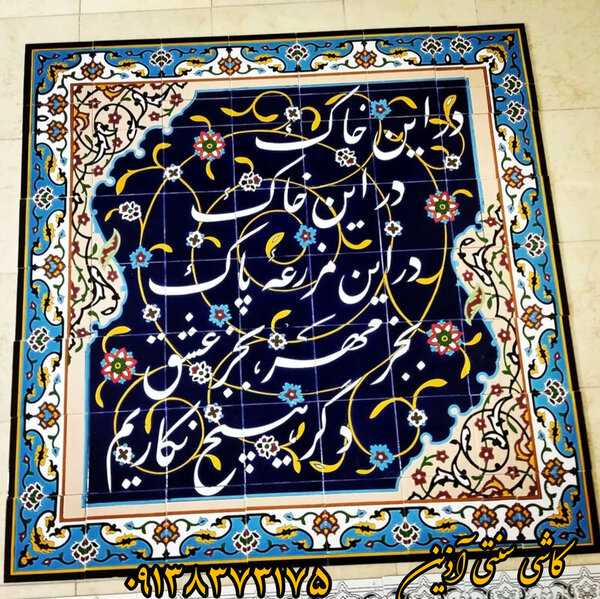 در این خاک
در این خاک
در این مزرعه پاک
بجز مهر، بجز عشق
دگر هیچ نکاریم
کاشی سنتی آذین
۰۹۱۳۸۳۷۳۱۷۵